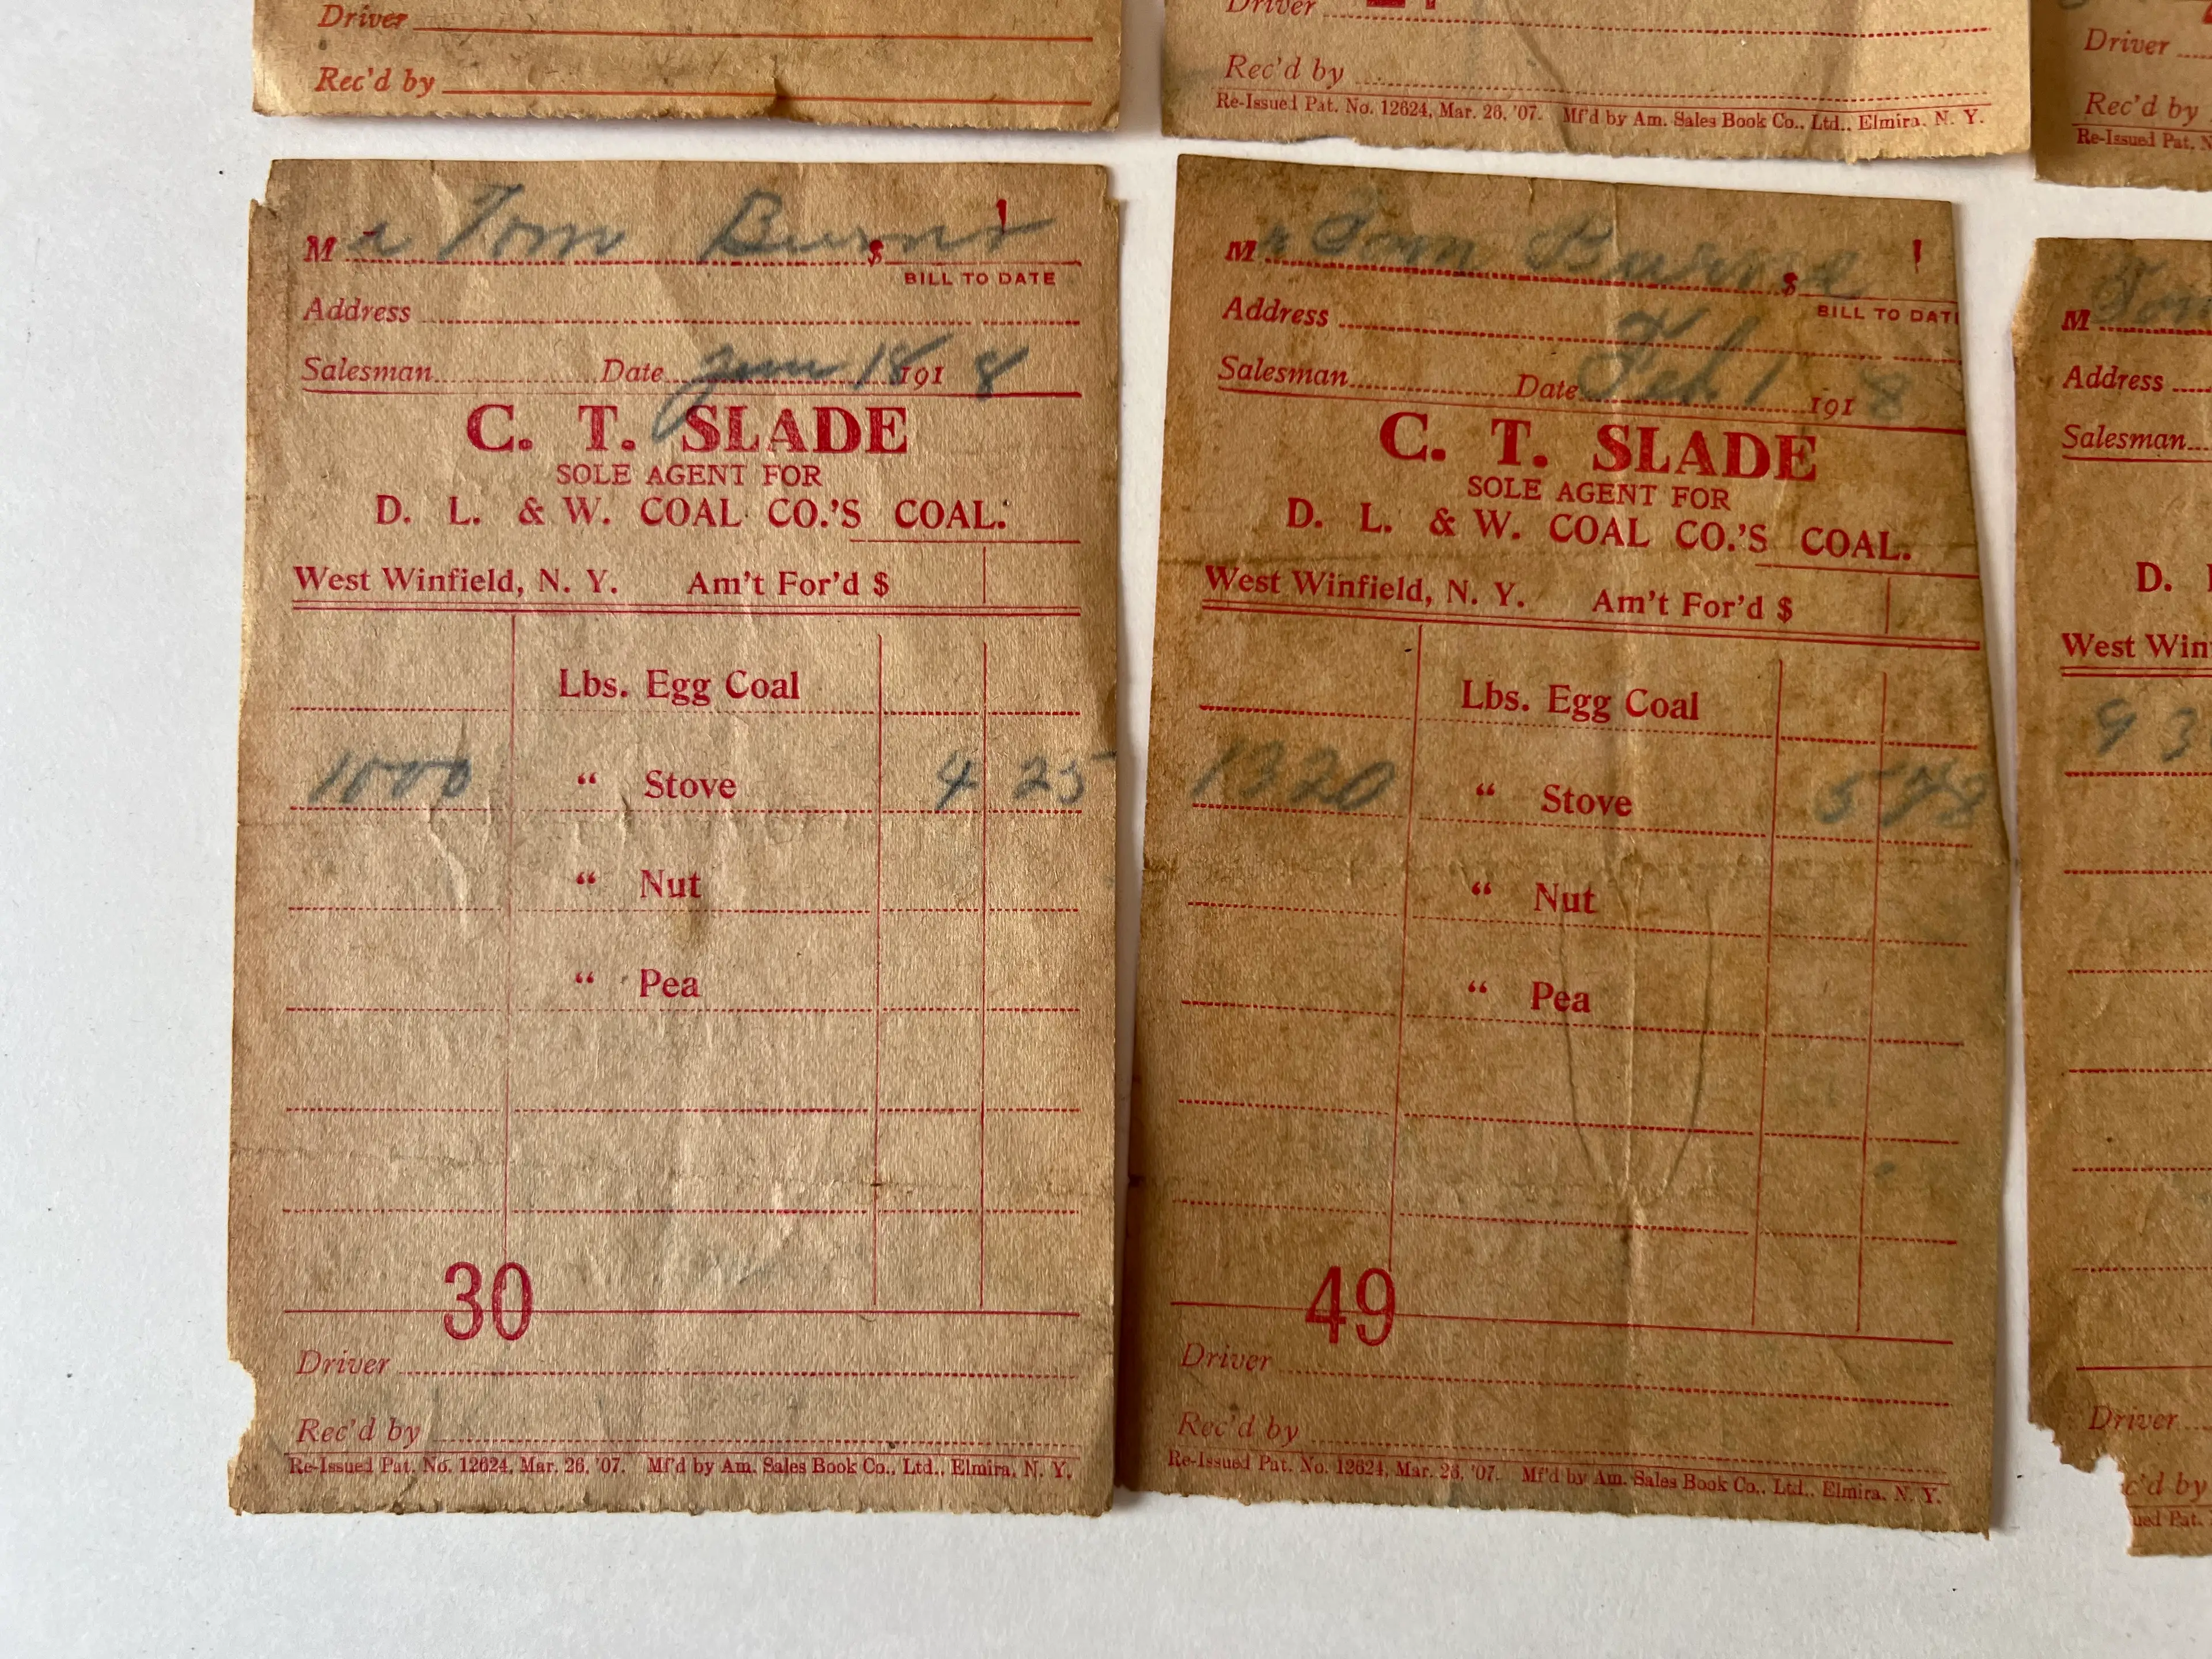 Driver
Rec'd by
Driver
Rec'd by
Re-Issued Pat. No. 12624, Mar. 26, '07. Mf'd by Am. Sales Book Co., Ltd., Elmira, N. Y.
Driver
Rec'd by
Re-Issued Pat.
M r Tom Burns $
BILL TO DATE
Address
Salesman Date Jan 18 191 8
C. T. SLADE
SOLE AGENT FOR
D. L. & W. COAL CO.'S COAL.
West Winfield, N. Y. Am't For'd $
Lbs. Egg Coal
1000 “ Stove 4 25
“ Nut
“ Pea
30
Driver
Rec'd by
Re-Issued Pat. No. 12624, Mar. 26, '07. Mf'd by Am. Sales Book Co., Ltd., Elmira, N. Y.
M r Tom Burns $
BILL TO DATE
Address
Salesman Date Feb 1 191 8
C. T. SLADE
SOLE AGENT FOR
D. L. & W. COAL CO.'S COAL.
West Winfield, N. Y. Am't For'd $
Lbs. Egg Coal
1320 “ Stove 5
“ Nut
“ Pea
49
Driver
Rec'd by
Re-Issued Pat. No. 12624, Mar. 26, '07. Mf'd by Am. Sales Book Co., Ltd., Elmira, N. Y.
M
Address
Salesman
D.
West Win
93
Driver
c'd by
ued Pat.